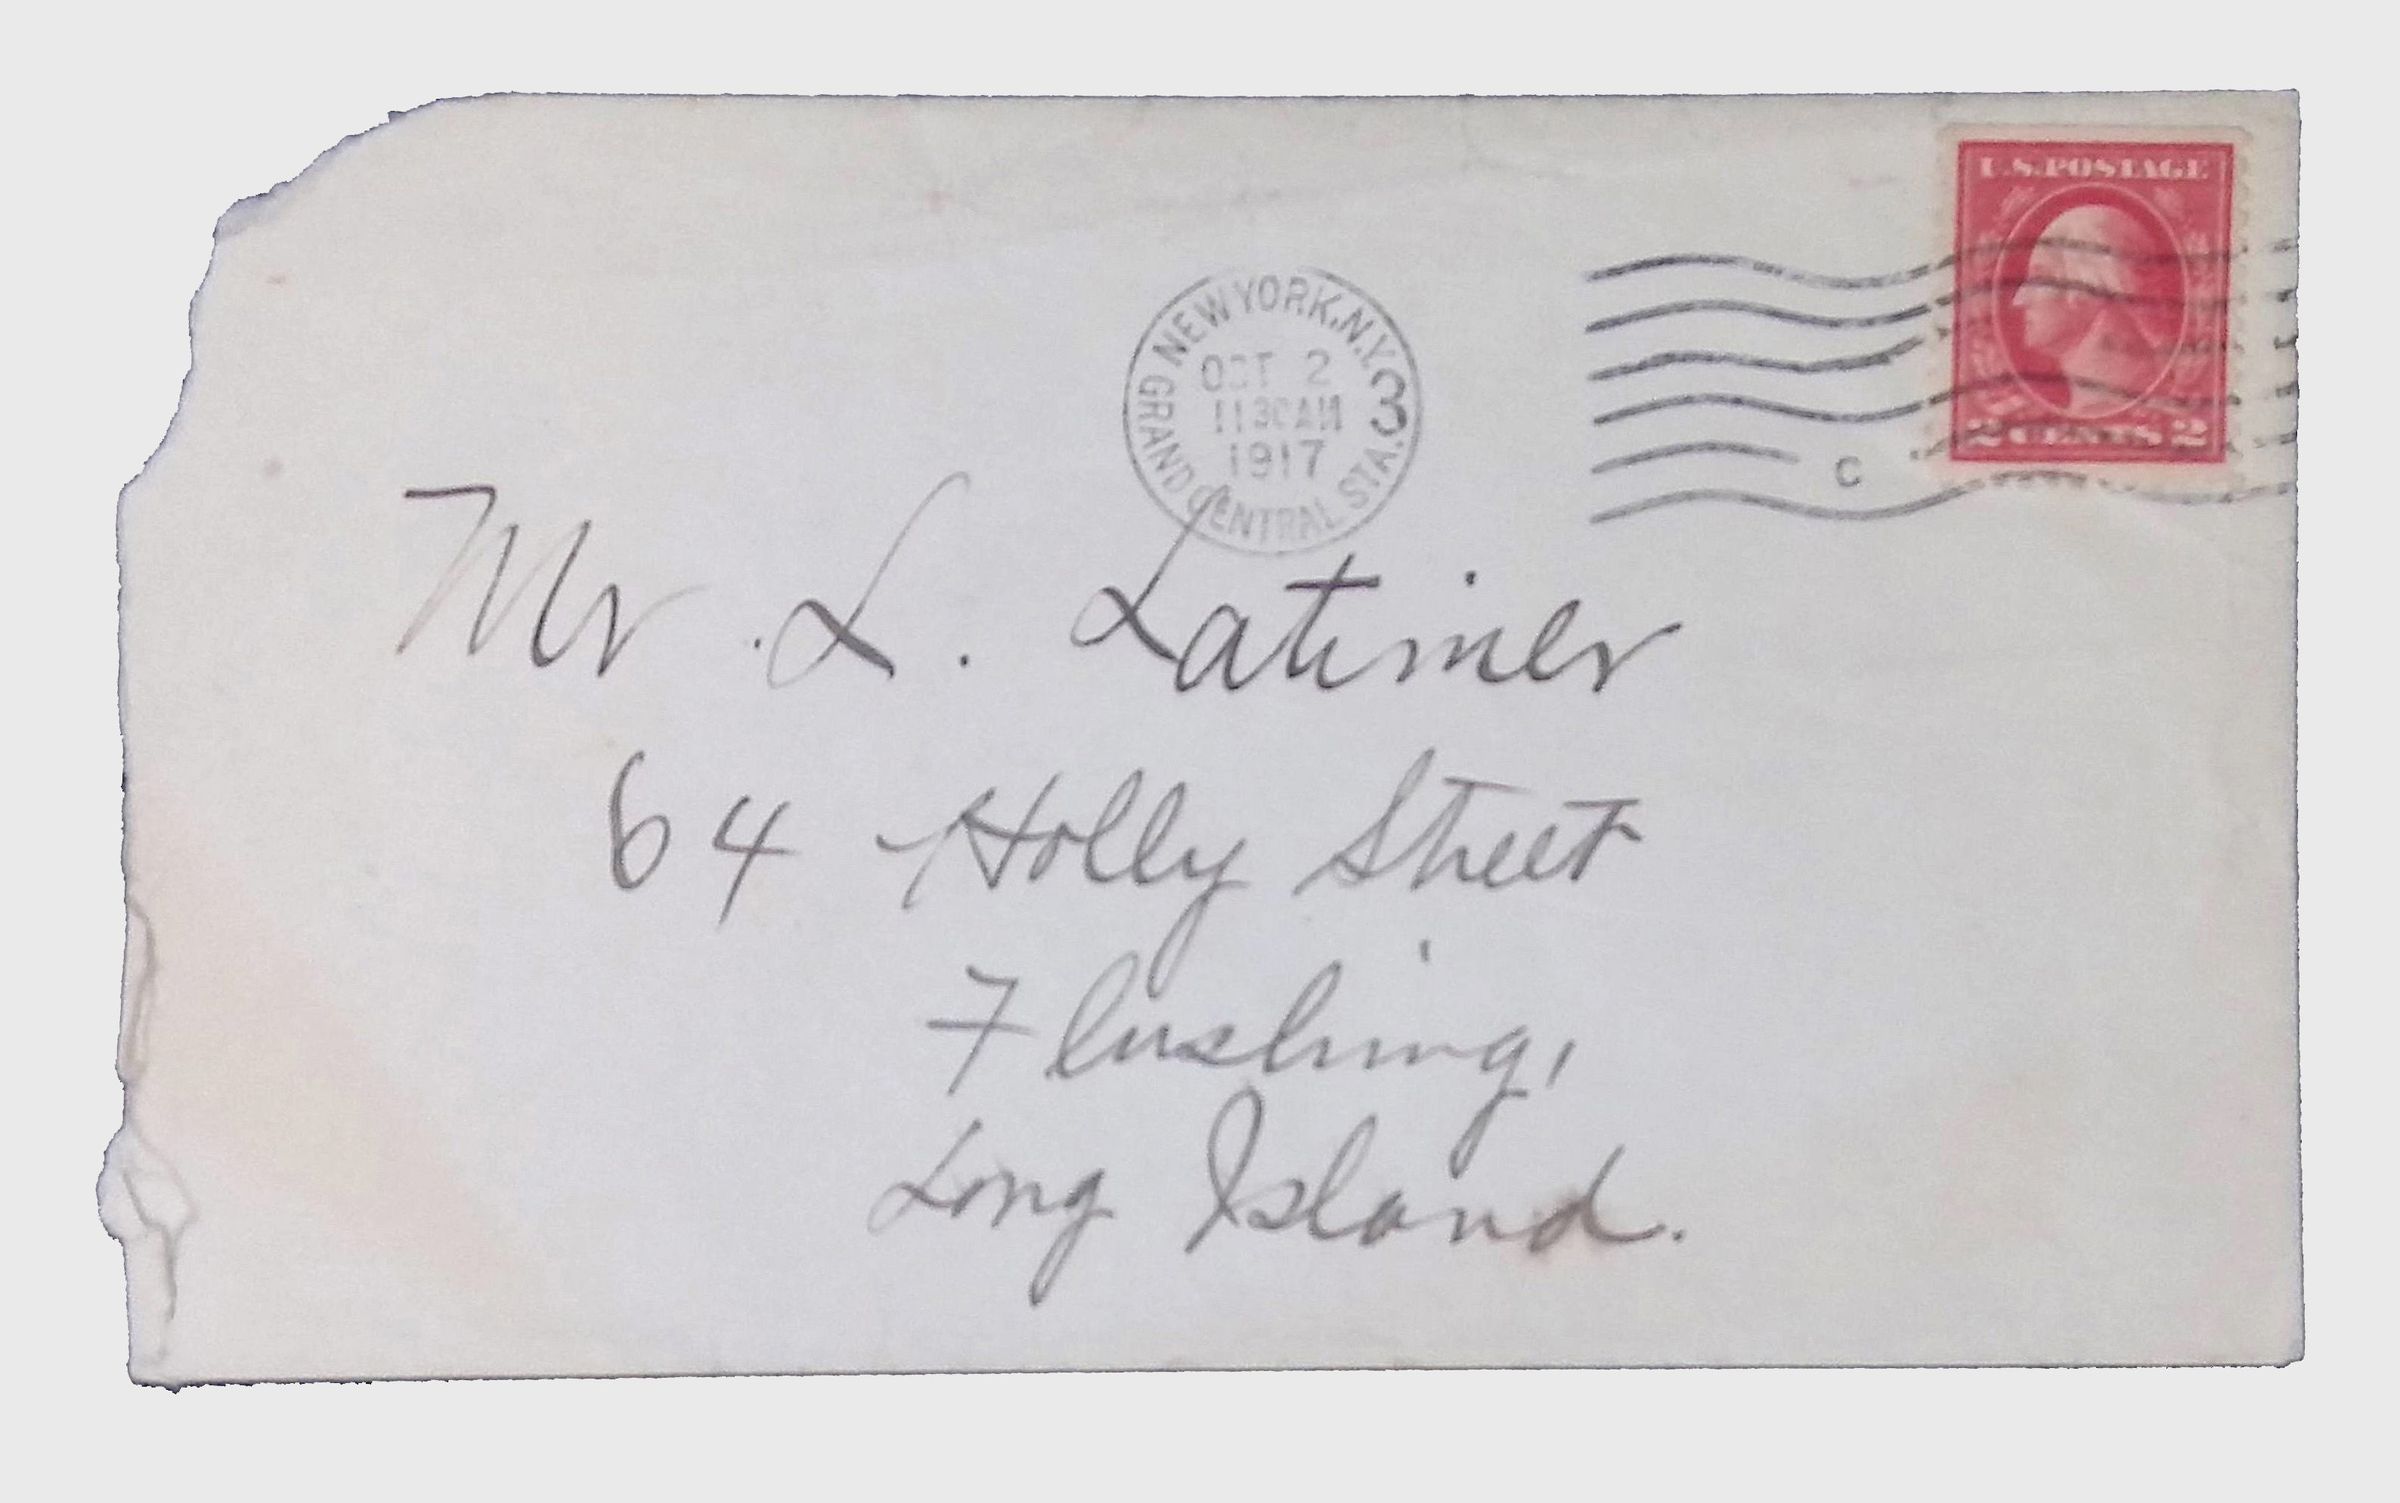 U.S. POSTAGE
2 CENTS 2
NEW YORK, N.Y. 3
OCT 2
11 30 AM
1917
GRAND CENTRAL STA.
C
Mr. L. Latimer
64 Holly Street
Flushing,
Long Island.